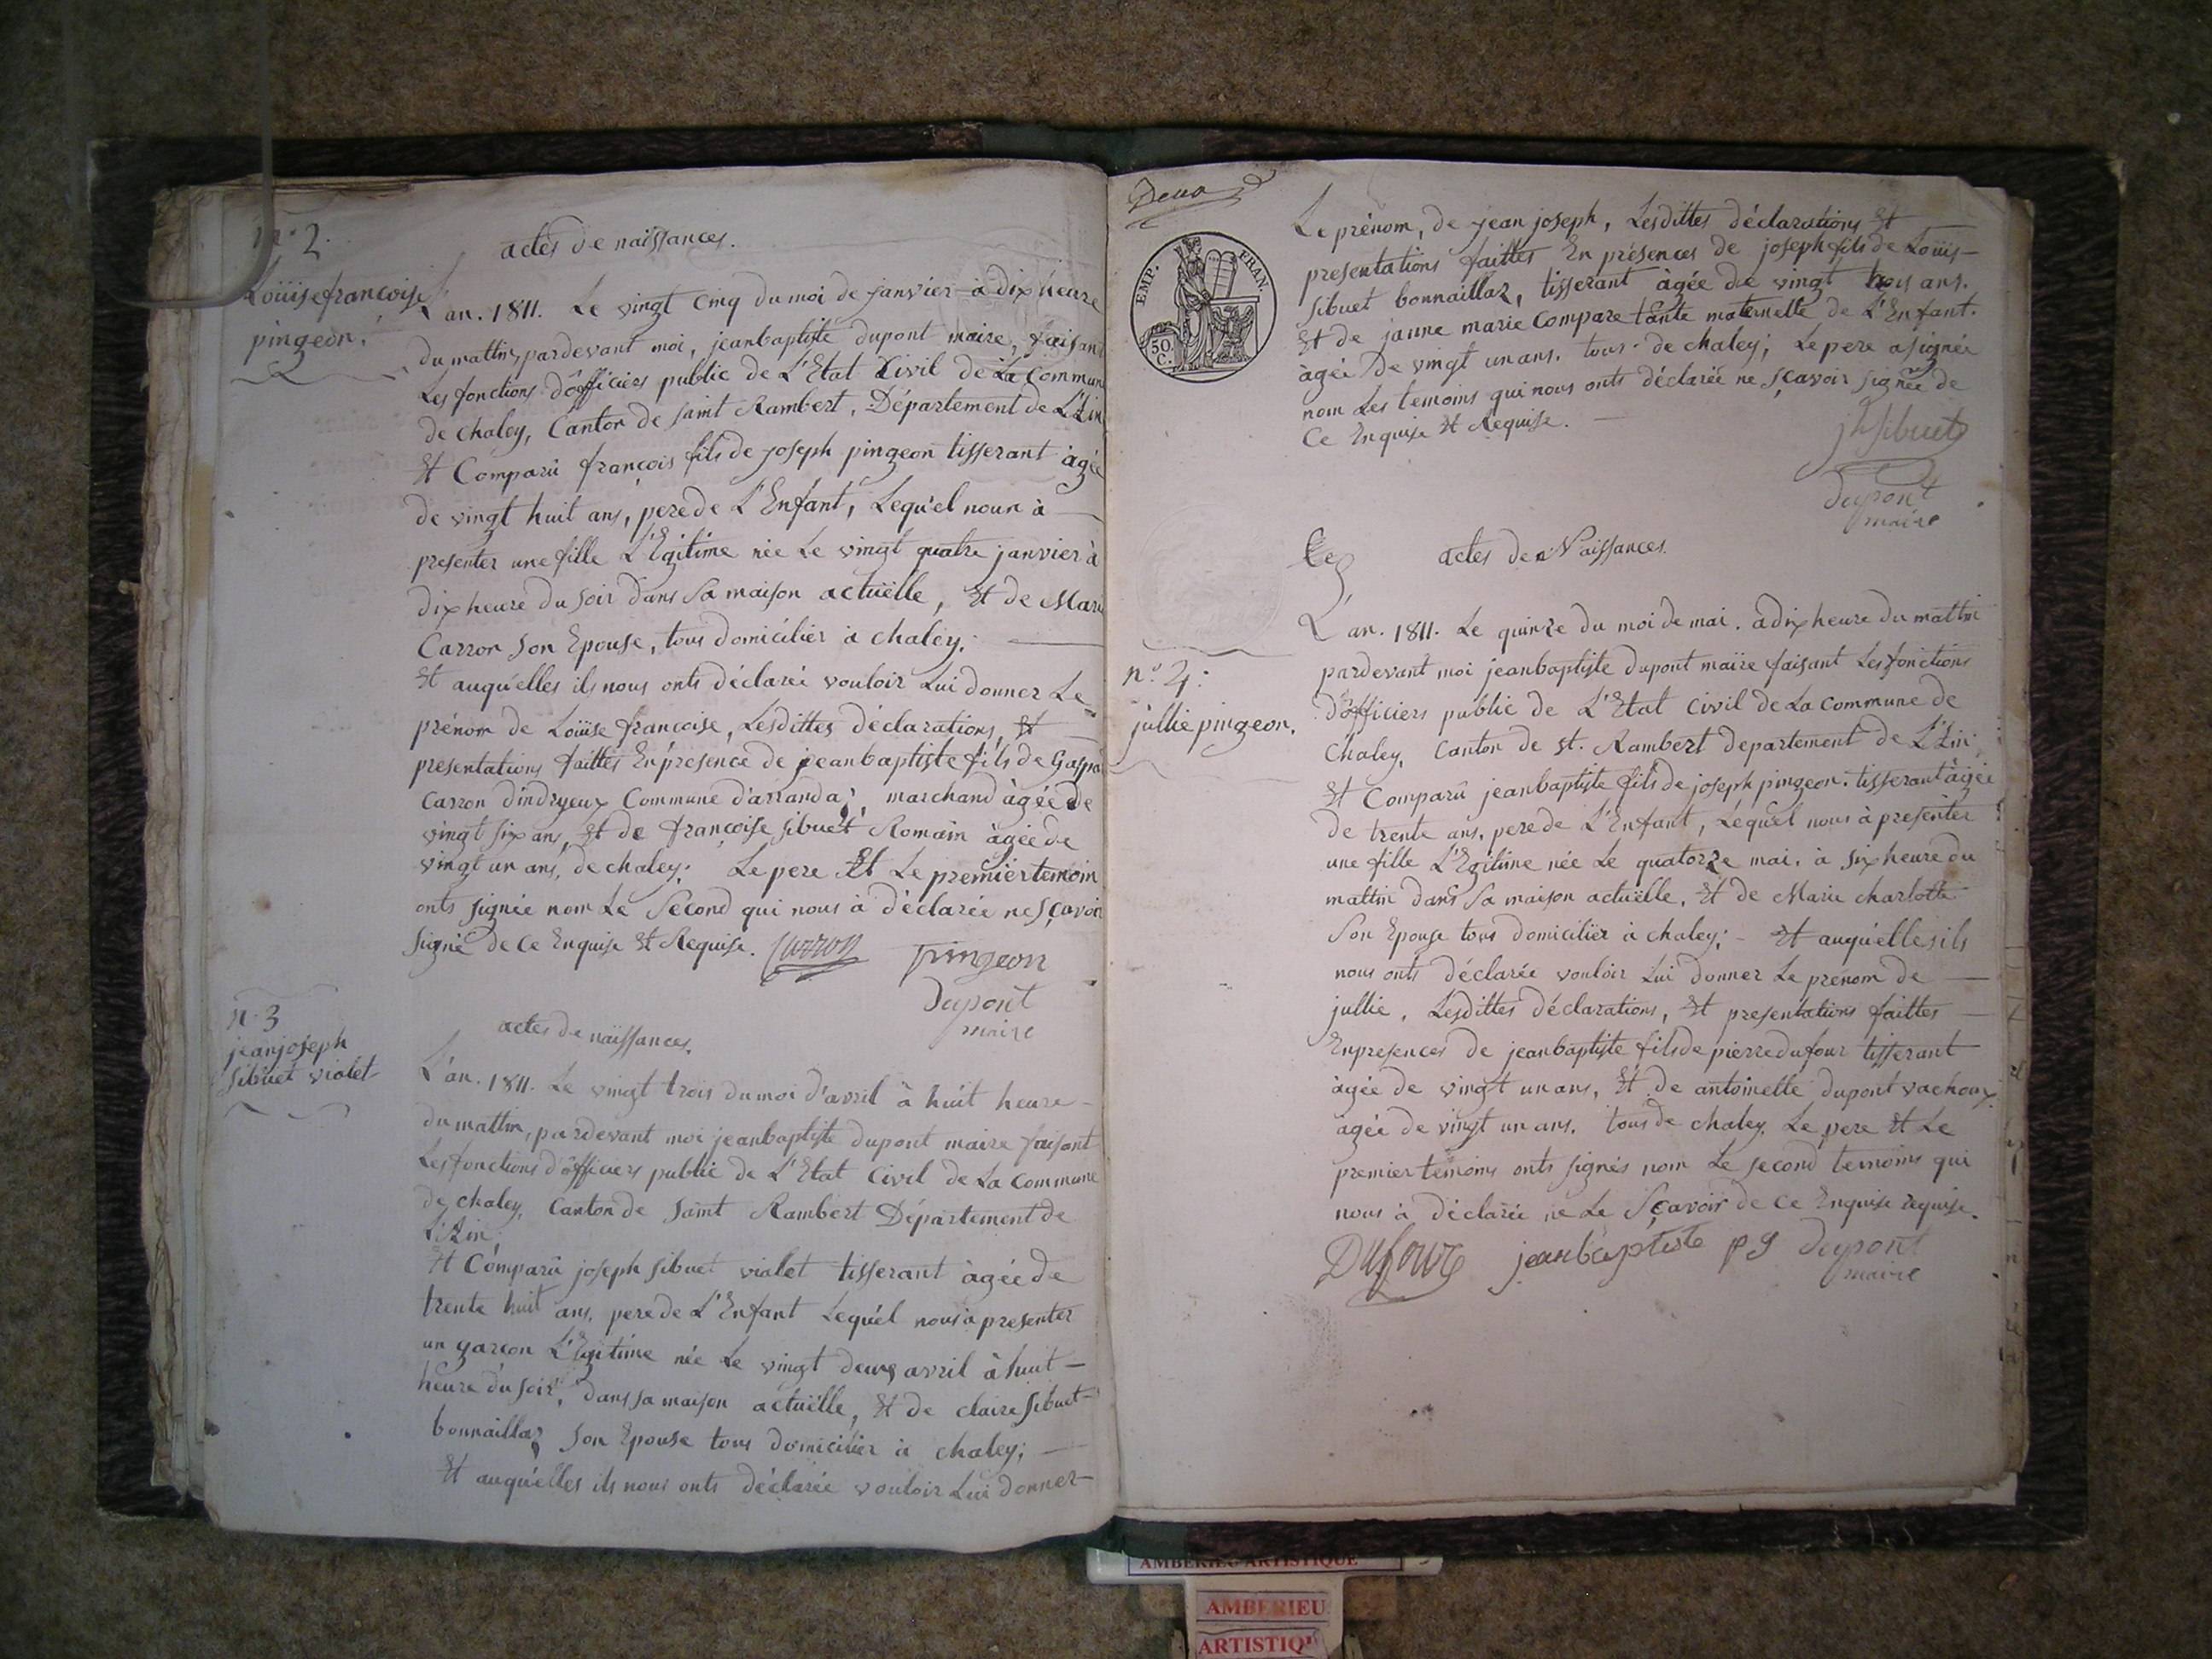 n° 2.
Loüise françoise
pingeon.
actes de naissances.
L'an. 1811. Le vingt cinq du moi de janvier à dix heure
du mattin, pardevant moi, jeanbaptiste dupont maire, faisant
Les fonctions d'officiers public de L'Etat Civil de La Commune
de chaley, Canton de saint Rambert, Département de L'Ain
Et Comparû françois fils de joseph pingeon tisserant àgée
de vingt huit ans, pere de L'Enfant, Lequ'el nous à
presenter une fille L'Egitime née Le vingt quatre janvier à
dix heure du soir dans sa maison actuëlle, Et de Marie
Carron son Epouse, tous domicilier à chaley.
Et auqu'elles ils nous onts déclarée vouloir Lui donner Le
prénom de Loüise françoise, Lesdittes déclarations, Et
presentations faittes En présence de jeanbaptiste fils de Gaspa
Carron d'indryeux Commune d'arrandaz, marchand àgée de
vingt six ans, Et de françoise sibuet Romain àgée de
vingt un ans, de chaley. Le pere Et Le premier temoin
onts signée nom Le Second qui nous à déclarée ne sçavoir
signé de Ce Enquise Et Requise. Carron pingeon
Dupont
maire
n° 3
jean joseph
sibuet violet
actes de naissances.
L'an. 1811. Le vingt trois du moi d'avril à huit heure
du mattin, pardevant moi jeanbaptiste dupont maire faisant
Les fonctions d'officiers public de L'Etat Civil de La Commune
de chaley, Canton de saint Rambert Département de
L'Ain,
Et Comparû joseph sibuet violet tisserant àgée de
trente huit ans, pere de L'Enfant Lequ'el nous à presenter
un garcon L'Egitime née Le vingt deux avril à huit
heure du soir, dans sa maison actuëlle, Et de claire sibuet
bonnaillaz son Epouse tous domicilier à chaley;
Et auqu'elles ils nous onts déclarée vouloir Lui donner
Deux
EMP. FRAN.
50
C.
Le prénom, de jean joseph, Lesdittes déclarations Et
presentations faittes En présences de joseph fils de Loüis
sibuet bonnaillaz, tisserant àgée de vingt trois ans.
Et de janne marie Compare tante maternelle de L'Enfant.
àgée de vingt un ans. tous de chaley; Le pere a signée
nom Les temoins qui nous onts déclarée ne sçavoir signée de
Ce Enquise Et Requise.
jh sibuet
Dupont
maire
actes de Naissances.
L'an. 1811. Le quinze du moi de mai. à dix heure du mattin
pardevant moi jeanbaptiste dupont maire faisant Les fonctions
d'officiers public de L'Etat Civil de La Commune de
Chaley, Canton de st. Rambert departement de L'Ain
Et Comparû jeanbaptiste fils de joseph pingeon. tisserant àgée
de trente ans, pere de L'Enfant, Lequ'el nous à presenter
une fille L'Egitime née Le quatorze mai. à six heure du
mattin dans sa maison actuëlle, Et de Marie charlotte
Son Epouse tous domicilier à chaley; - Et auqu'elles ils
nous onts déclarée vouloir Lui donner Le prénom de
jullie, Lesdittes déclarations, Et presentations faittes
En presences de jeanbaptiste fils de pierre dufour tisserant
àgée de vingt un ans, Et de antoinette dupont vachoux
agée de vingt un ans. tous de chaley. Le pere Et Le
premier temoins onts signés nom Le second temoins qui
nous à déclarée ne Le Sçavoir de Ce Enquise requise.
n° 4.
jullie pingeon.
Dufour jeanbaptiste pg Dupont
maire
AMBERIEU ARTISTIQUE
AMBERIEU
ARTISTIQU